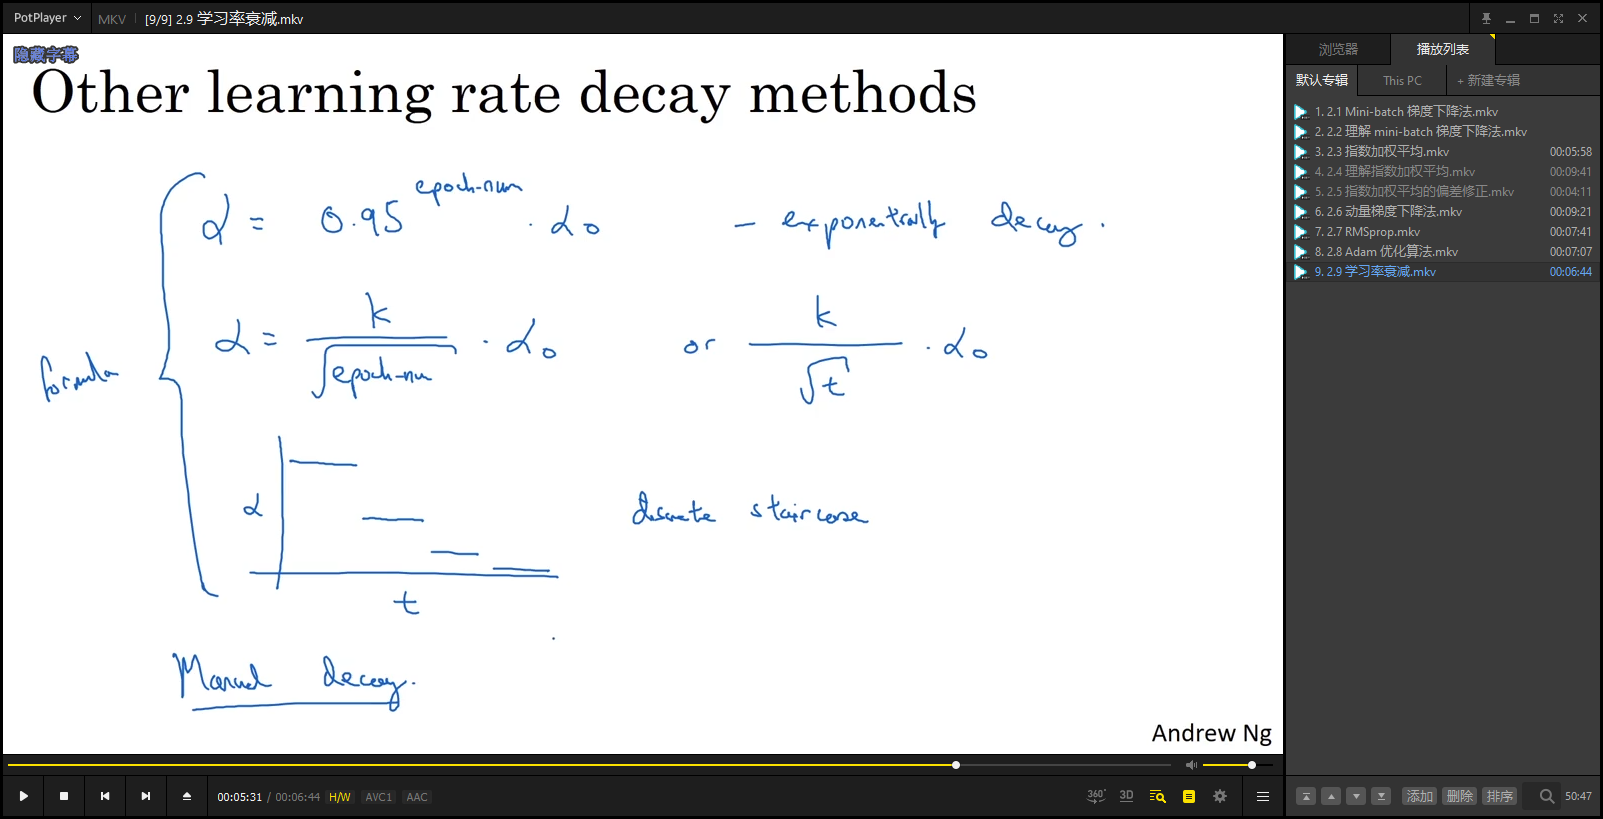 PotPlayer MKV [9/9] 2.9 学习率衰减.mkv
隐藏字幕
Other learning rate decay methods
α = 0.95^epoch-num · α₀ – exponentially decay.
formula
α = k / √epoch-num · α₀ or k / √t · α₀
α
discrete staircase
t
Manual decay.
Andrew Ng
00:05:31 / 00:06:44 H/W AVC1 AAC
360° 3D
浏览器 播放列表
默认专辑 This PC + 新建专辑
1. 2.1 Mini-batch 梯度下降法.mkv
2. 2.2 理解 mini-batch 梯度下降法.mkv
3. 2.3 指数加权平均.mkv 00:05:58
4. 2.4 理解指数加权平均.mkv 00:09:41
5. 2.5 指数加权平均的偏差修正.mkv 00:04:11
6. 2.6 动量梯度下降法.mkv 00:09:21
7. 2.7 RMSprop.mkv 00:07:41
8. 2.8 Adam 优化算法.mkv 00:07:07
9. 2.9 学习率衰减.mkv 00:06:44
添加 删除 排序 50:47